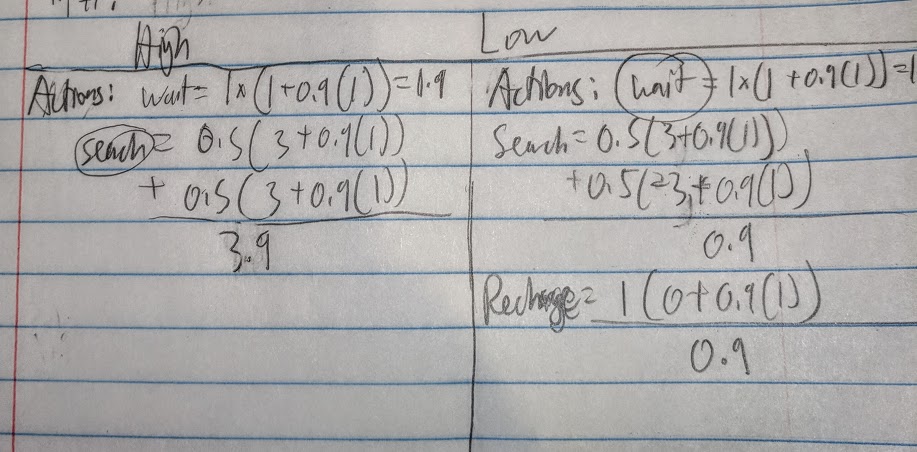 High
Actions: wait = 1x(1+0.9(1)) = 1.9
search = 0.5(3+0.9(1))
+ 0.5(3+0.9(1))
3.9
Low
Actions: wait = 1x(1+0.9(1)) = 1
Search = 0.5(3+0.9(1))
+0.5(-3+0.9(1))
0.9
Recharge = 1(0+0.9(1))
0.9